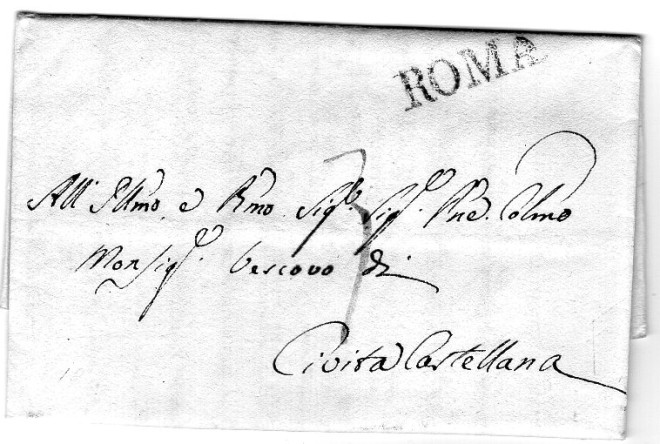 ROMA
All' Illmo e Rmo Sigr. Sigr. Pne. Colmo
Monsigr. Vescovo di
Civita Castellana